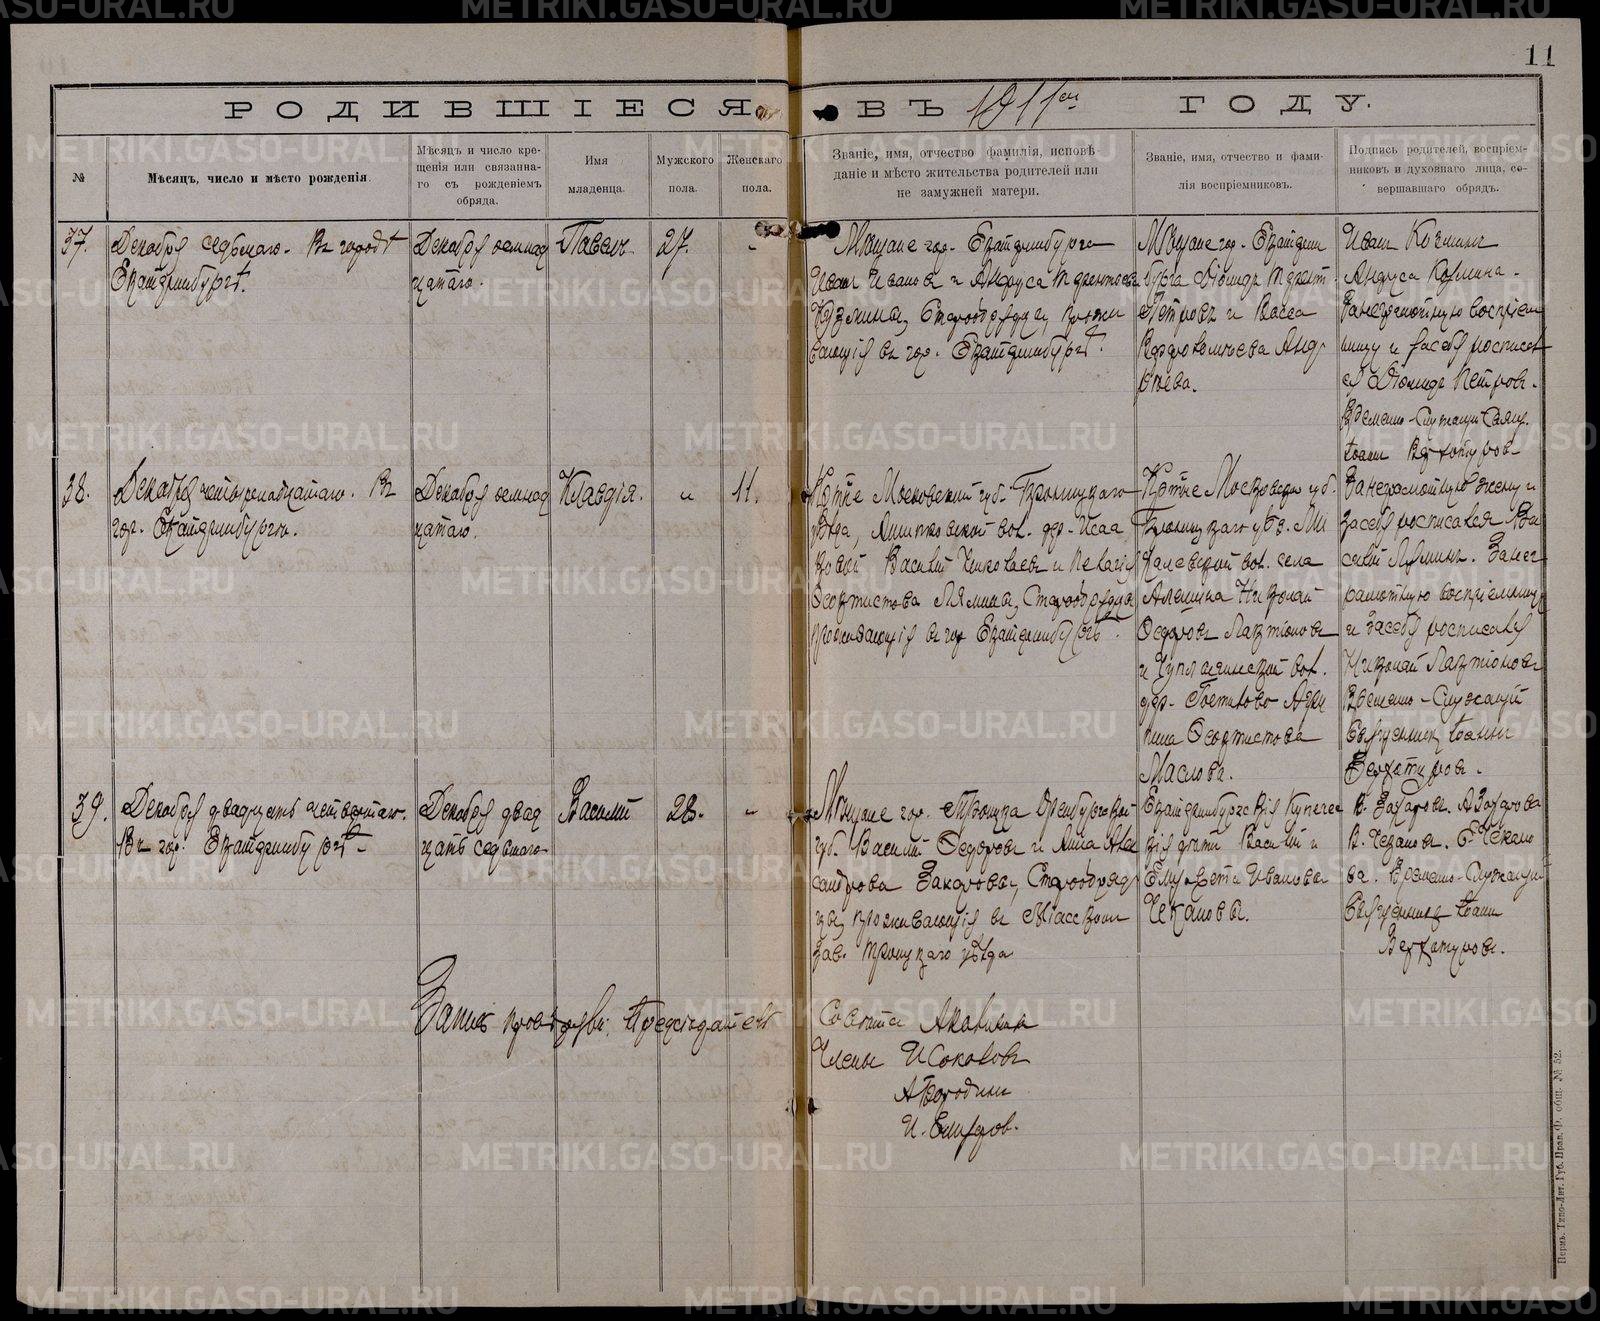 11
РОДИВШІЕСЯ ВЪ 1911ом ГОДУ.
№
Мѣсяцъ, число и мѣсто рожденія.
Мѣсяцъ и число кре-
щенія или связанна-
го съ рожденіемъ
обряда.
Имя
младенца.
Мужского
пола.
Женскаго
пола.
Званіе, имя, отчество фамилія, исповѣ-
даніе и мѣсто жительства родителей или
не замужней матери.
Званіе, имя, отчество и фами-
лія воспріемниковъ.
Подпись родителей, воспріем-
никовъ и духовнаго лица, со-
вершавшаго обрядъ.
37.
Декабря седьмаго. Въ городѣ
Екатеринбургѣ.
Декабря осмнад
цатаго.
Павелъ
27.
Мѣщане гор. Екатеринбурга
Иванъ Ивановъ и
Козмины, Старообрядцы, прожи
вающія въ гор. Екатеринбургѣ.
Мѣщане гор. Екатерин
бурга Діомидъ
Петровъ и Васса
Андр
еева.
Иванъ Козминъ
Козмина.
За неграмотную воспріем
ницу и за себя росписался
Діомидъ Петровъ.
Временно-служащій Свящ.
Іоаннъ Верхотуровъ
38.
Декабря четырнадцатаго. Въ
гор. Екатеринбургѣ.
Декабря осмнад
цатаго.
Клавдія.
"
11.
Кр-не Московской губ. Бронницкаго
уѣзда, вол. дер. Исаа
Василій Николаевъ и Пелагія
Лямины, Старообрядцы
проживающія въ гор Екатеринбургѣ.
Кр-не Московской губ.
Бронницкаго уѣз.
вол. села
Алешина Николай
Ѳедоровъ Лактіоновъ
и вол.
дер.
Маслова.
За неграмотную жену и
за себя росписался Ва
силій Ляминъ. За нег
рамотную воспріемницу
и за себя росписался
Николай Лактіоновъ
Временно-Служащій
Священникъ Іоаннъ
Верхотуровъ.
39.
Декабря двадцать четвертаго.
Въ гор. Екатеринбургѣ
Декабря двад
цать седьмаго
Василій
28.
Мѣщане гор. Троицка Оренбургской
губ. Василій Ѳедоровъ и Анна Алек
сандрова Захаровы, Старообряд
цы, проживающія въ Міасском
зав. Троицкаго уѣзда
Екатеринбургскія Купечес
кія дѣти Василій и
Елизавета Ивановы
Чекановы.
В. Захаровъ. А Захарова
В. Чекановъ. Е. Чекано
ва. Временно-Служащій
Священникъ Іоаннъ
Верхотуровъ.
Запись провѣряли: Председатель
Совѣта
Члены И Соколовъ
А Бородинъ